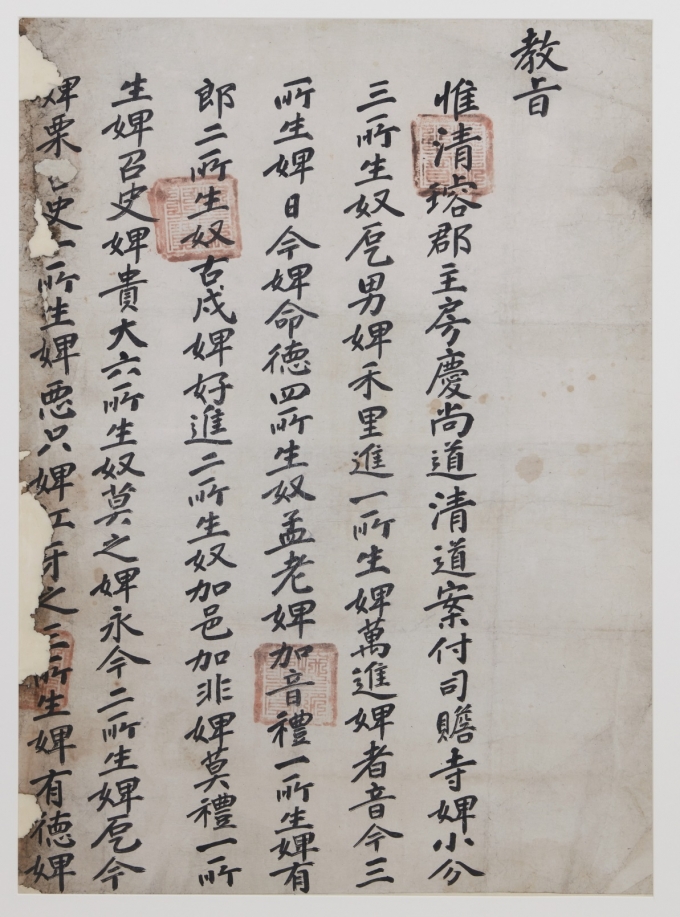 教旨
惟清璿郡主房慶尚道清道案付司贍寺婢小分
三所生奴㖙男婢禾里進一所生婢萬進婢者音今三
所生婢日今婢命德四所生奴孟老婢加音禮一所生婢有
郎二所生奴古戌婢好進二所生奴加邑加非婢莫禮一所
生婢召史婢貴大六所生奴莫之婢永今二所生婢㖙今
婢栗 史一所生婢惡只婢 之三所生婢有德婢